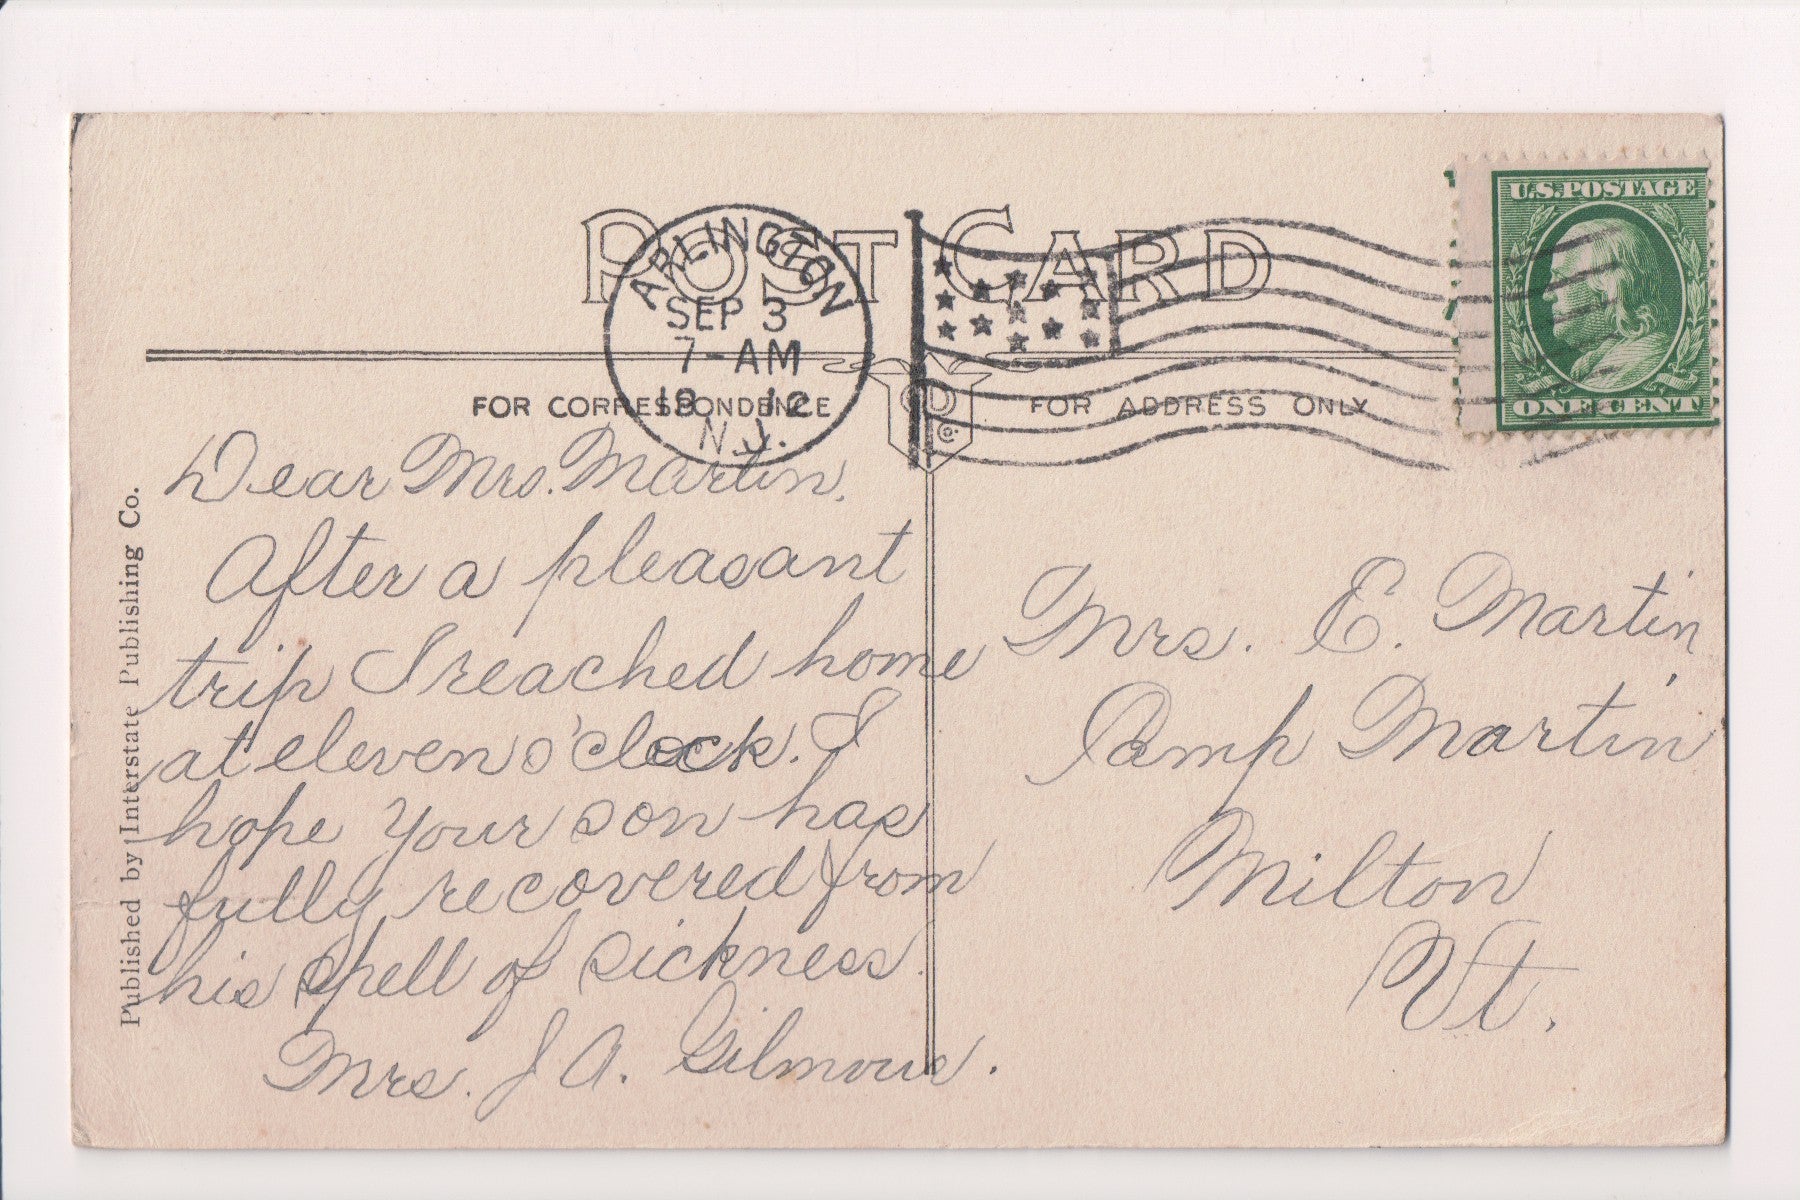 POST CARD
ARLINGTON
SEP 3
7-AM
19 12
N.J.
U.S. POSTAGE
ONE CENT
FOR CORRESPONDENCE
FOR ADDRESS ONLY
Published by Interstate Publishing Co.
Dear Mrs. Martin,
After a pleasant
trip I reached home
at eleven o'clock. I
hope your son has
fully recovered from
his spell of sickness.
Mrs. J A. Gilmour.
Mrs. E. Martin,
Camp Martin
Milton
Vt.